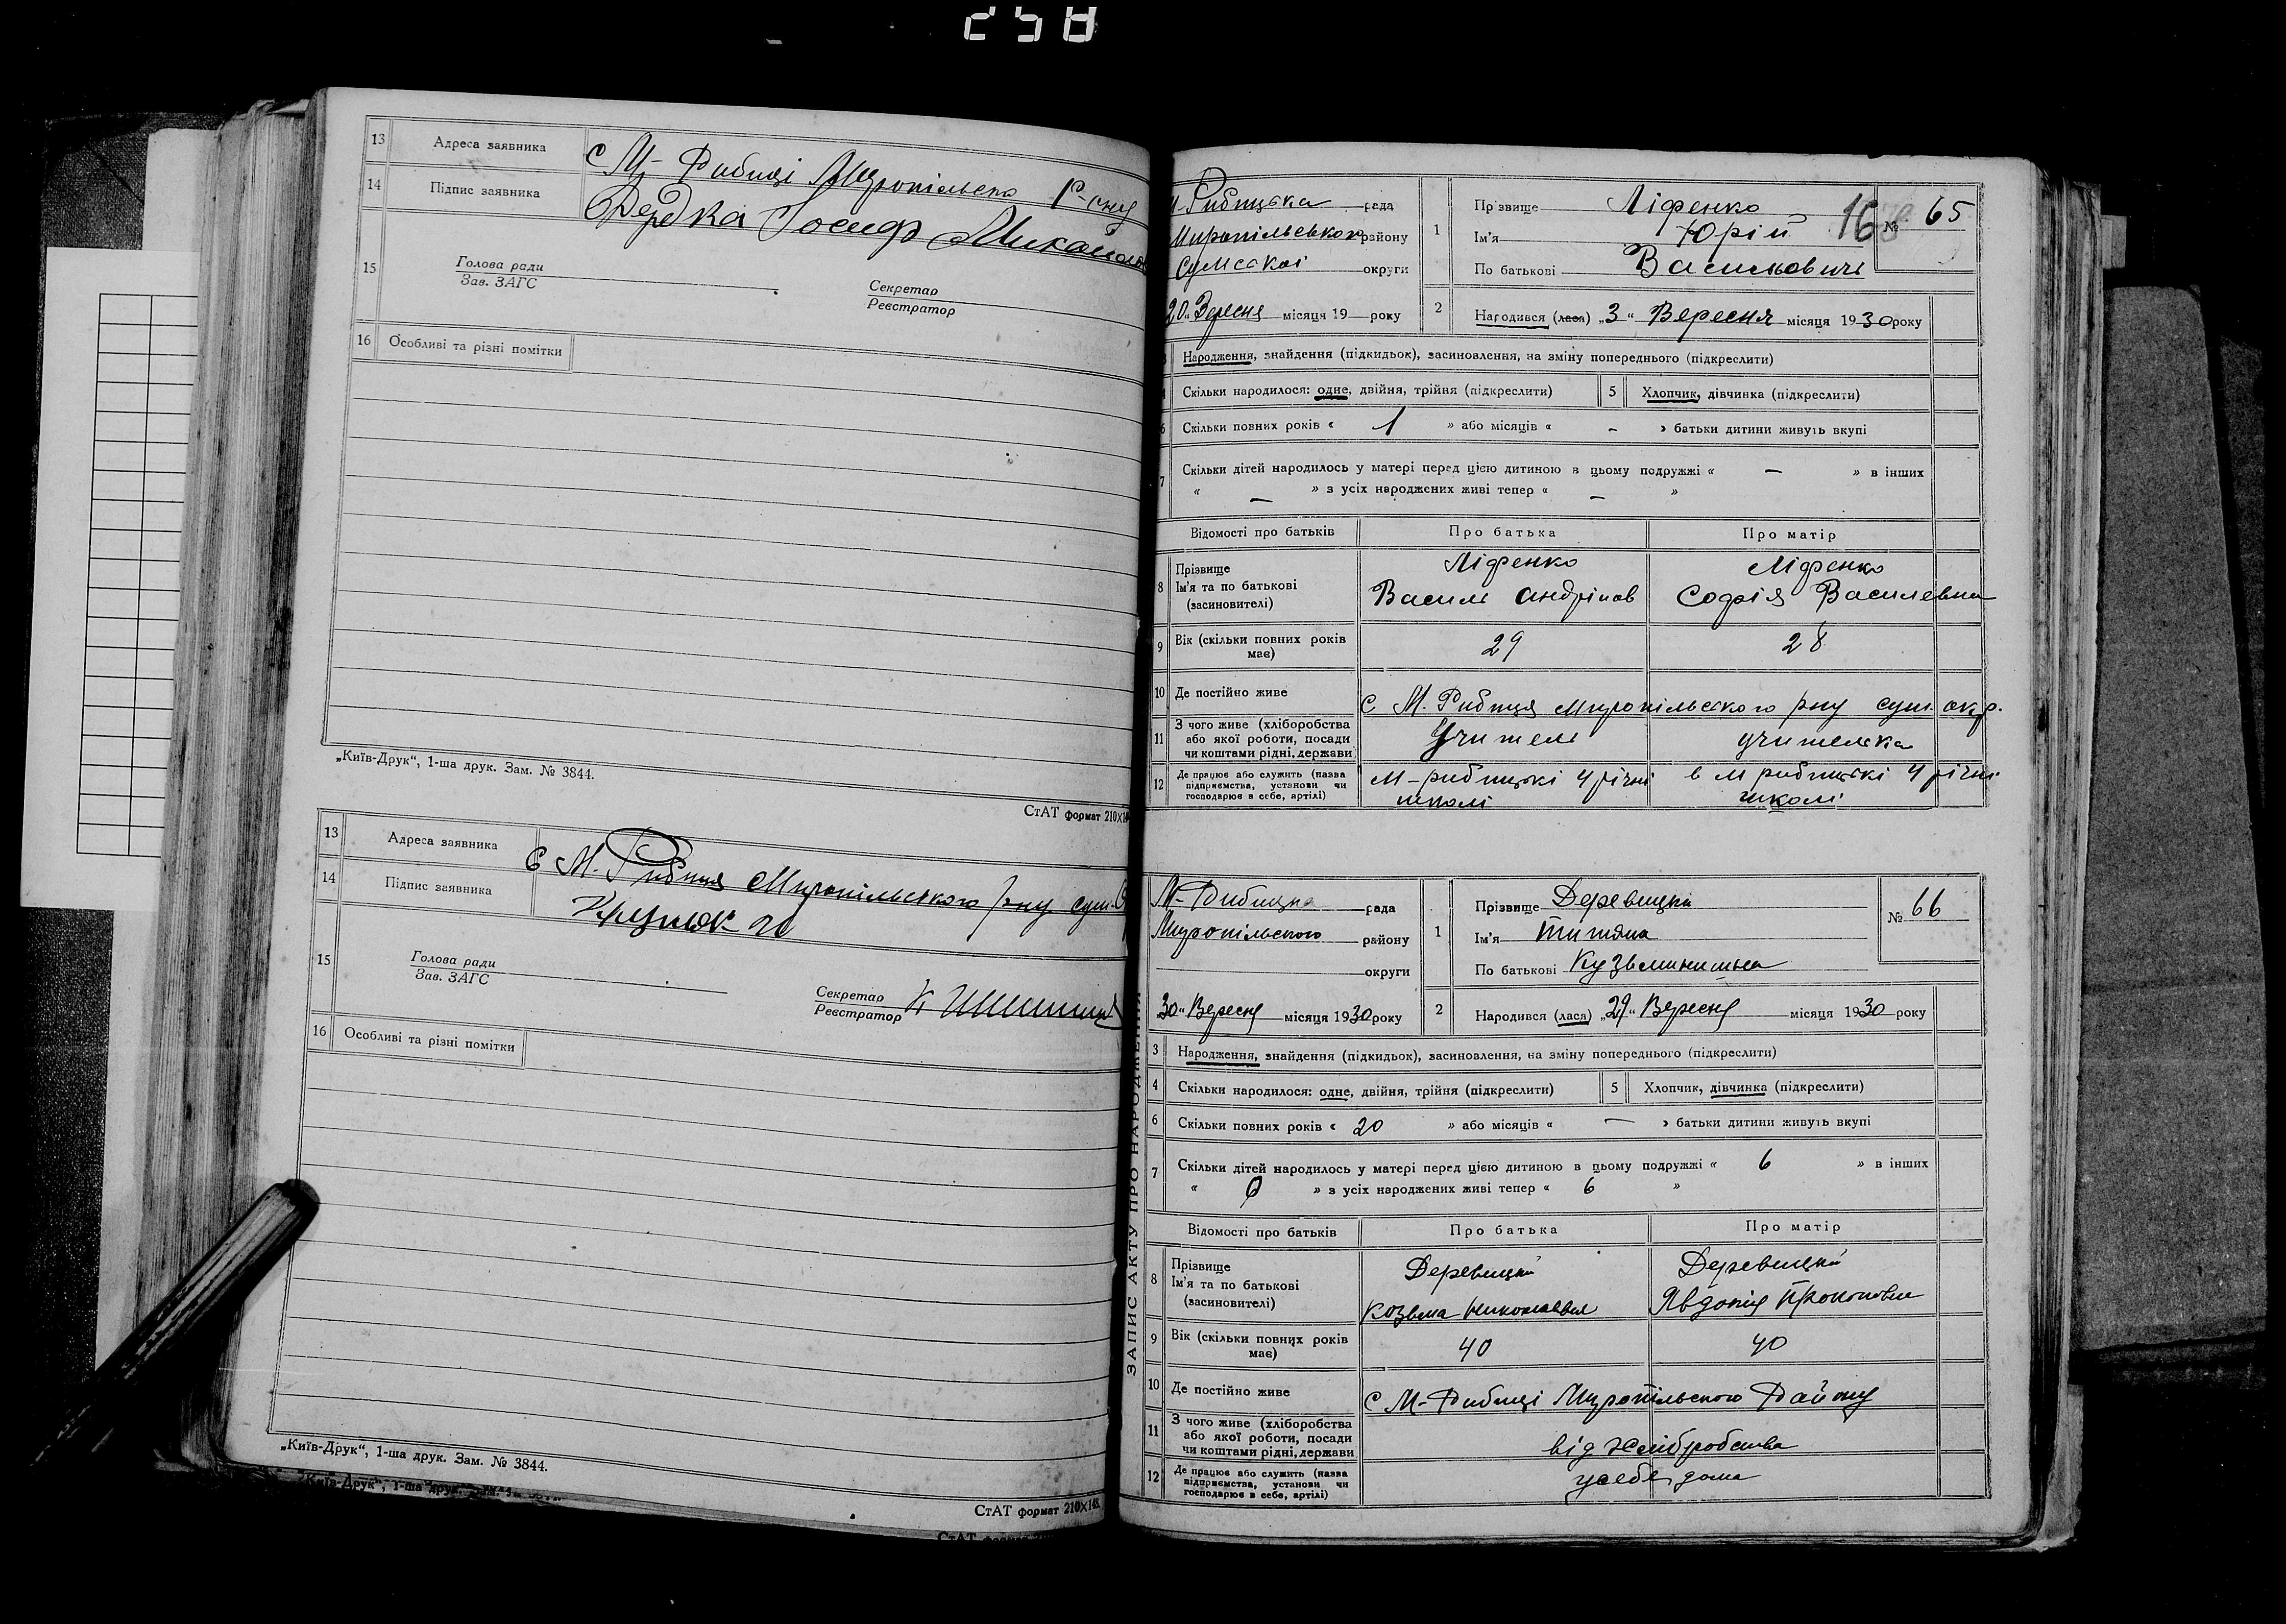 258
13 Адреса заявника С М- Рибиці Миропільско Р-ну
14 Підпис заявника Дердка Іосиф Миколаєв
15 Голова ради
Зав. ЗАГС
Секретар
Реєстратор
16 Особливі та різні помітки
„Київ-Друк“, 1-ша друк. Зам. № 3844.
СтАТ формат 210×14
13 Адреса заявника С М. Рибиця Миропільского р-ну сум.
14 Підпис заявника
15 Голова ради
Зав. ЗАГС
Секретар
Реєстратор
16 Особливі та різні помітки
„Київ-Друк“, 1-ша друк. Зам. № 3844.
СтАТ формат 210×148.
М-Рибицька рада
Миропільського району
Сумської округи
20 „ Вересня місяця 19 року
1 Прізвище Ліфенко
Ім'я Юрій
По батькові Васильовичь
16 № 65
2 Народився (лася) „3“ Вересня місяця 1930 року
Народження, знайдення (підкидьок), засиновлення, на зміну попереднього (підкреслити)
Скільки народилося: одне, двійня, трійня (підкреслити) 5 Хлопчик, дівчинка (підкреслити)
6 Скільки повних років « 1 » або місяців « - » батьки дитини живуть вкупі
7 Скільки дітей народилось у матері перед цією дитиною в цьому подружжі « — » в інших
« — » з усіх народжених живі тепер « — »
Відомості про батьків Про батька Про матір
8 Прізвище Ліфенко Ліфенко
Ім'я та по батькові Василь Андріиов Софія Василевна
(засиновителі)
9 Вік (скільки повних років має) 29 28
10 Де постійно живе С М. Рибиця Миропільського рну сум. окр.
11 З чого живе (хліборобства або якої роботи, посади чи коштами рідні, держави) Учитель учителька
12 Де працює або служить (назва підприємства, установи чи господарює в себе, артілі) М-рибицькі 4 річні школі в М рибицькі 4 річні школі
ЗАПИС АКТУ ПРО НАРОДЖЕННЯ
М-Рибицка рада
Миропільского району
округи
„30“ Вересня місяця 1930 року
1 Прізвище Деревицки
Ім'я Титяна
По батькові Кузьминишна
№ 66
2 Народився (лася) „29“ Вересня місяця 1930 року
3 Народження, знайдення (підкидьок), засиновлення, на зміну попереднього (підкреслити)
4 Скільки народилося: одне, двійня, трійня (підкреслити) 5 Хлопчик, дівчинка (підкреслити)
6 Скільки повних років « 20 » або місяців « — » батьки дитини живуть вкупі
7 Скільки дітей народилось у матері перед цією дитиною в цьому подружжі « 6 » в інших
« 0 » з усіх народжених живі тепер « 6 »
Відомості про батьків Про батька Про матір
8 Прізвище Деревицки Деревицки
Ім'я та по батькові Козьма Николаевич Явдокія Прокоповна
(засиновителі)
9 Вік (скільки повних років має) 40 40
10 Де постійно живе С М-Рибиці Миропільского Району
11 З чого живе (хліборобства або якої роботи, посади чи коштами рідні, держави) від хлібробства
12 Де працює або служить (назва підприємства, установи чи господарює в себе, артілі) у себе дома